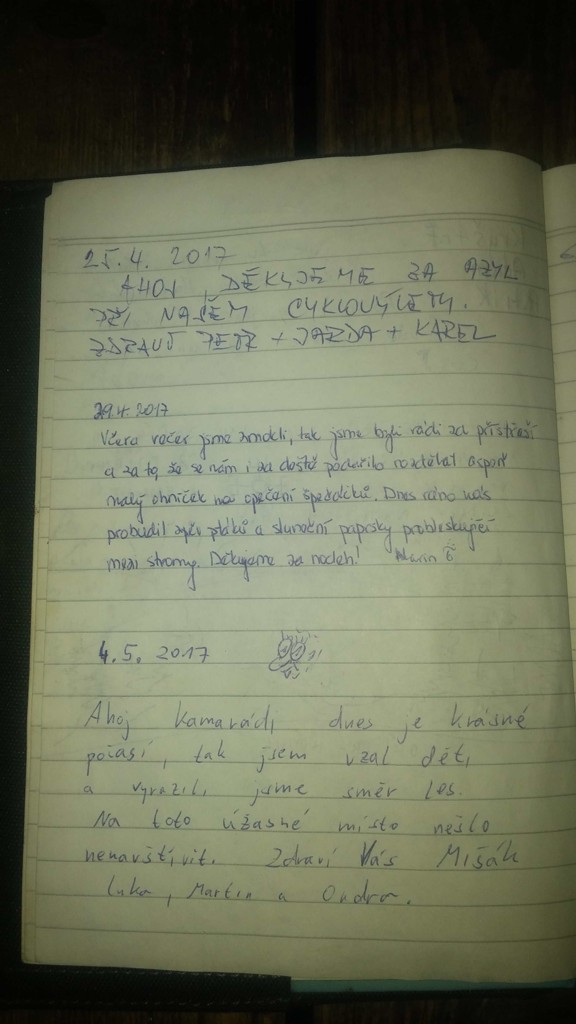 25.4. 2017
AHOJ, DĚKUJEME ZA AZYL
PŘI NAŠEM CYKLOVÝLETU.
ZDRAVÍ PETR + JARDA + KAREL
29.4.2017
Včera večer jsme zmokli, tak jsme byli rádi za přístřeší
a za to, že se nám i za deště podařilo rozdělat aspoň
malý ohníček na opečení špekáčků. Dnes ráno nás
probudil zpěv ptáků a sluneční paprsky probleskující
mezi stromy. Děkujeme za nocleh!
4.5. 2017
Ahoj kamarádi, dnes je krásné
počasí, tak jsem vzal děti
a vyrazili jsme směr les.
Na toto úžasné místo nešlo
nenavštívit. Zdraví Vás Mišák
Luka, Martin a Ondra.